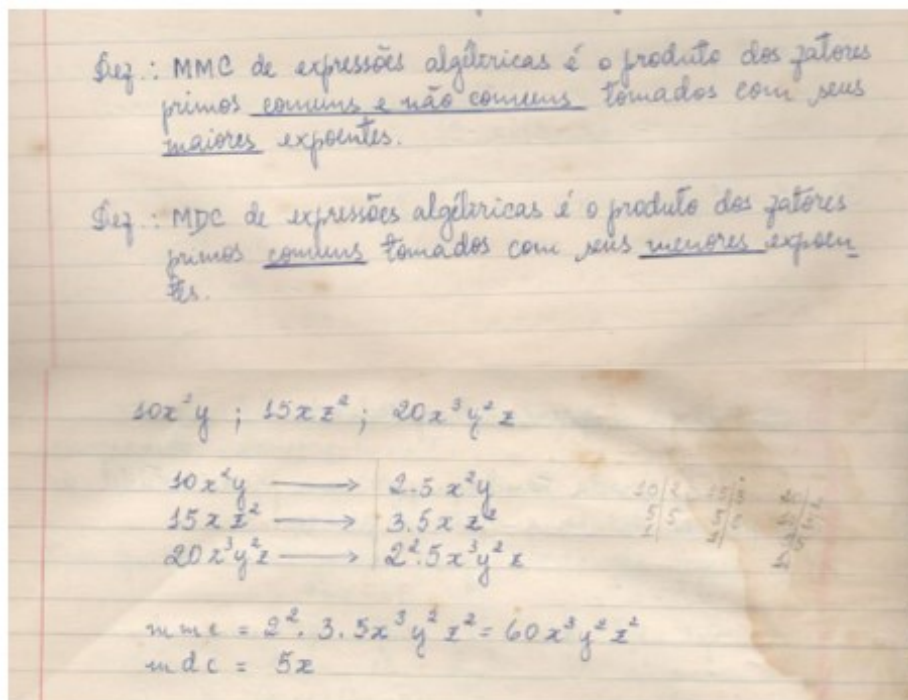 Def.: MMC de expressões algébricas é o produto dos fatores
primos comuns e não comuns tomados com seus
maiores expoentes.
Def.: MDC de expressões algébricas é o produto dos fatores
primos comuns tomados com seus menores expoen
tes.
10x²y ; 15xz² ; 20x³y²z
10x²y ⟶ 2.5x²y
15xz² ⟶ 3.5xz²
20x³y²z ⟶ 2².5x³y²z
10|2 15|3 20|2
5|5 5|5
mmc = 2².3.5x³y²z² = 60x³y²z²
mdc = 5x